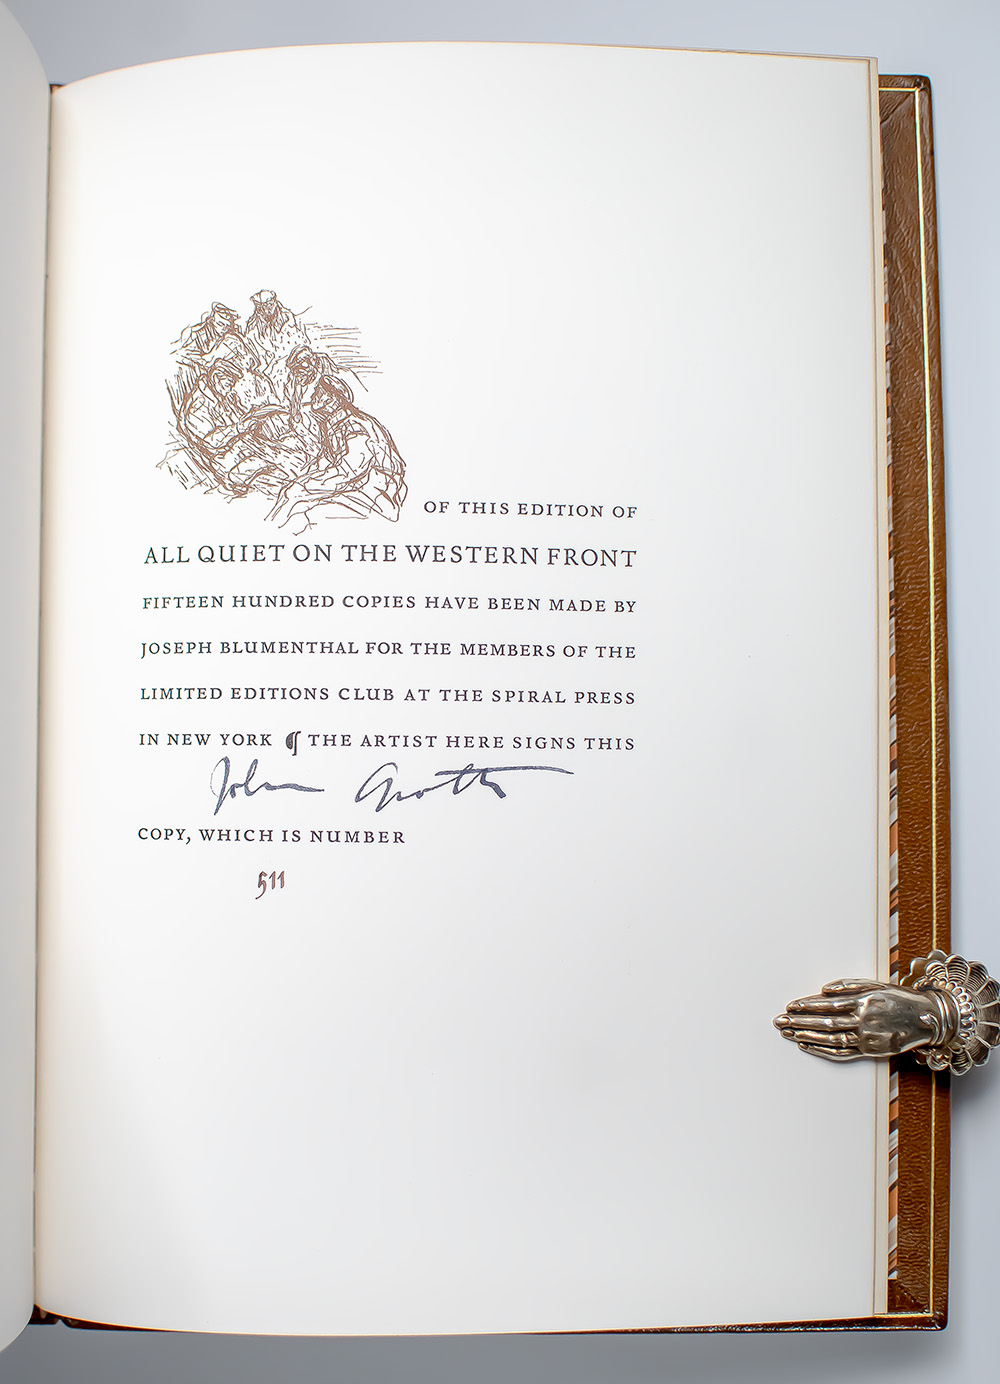 OF THIS EDITION OF
ALL QUIET ON THE WESTERN FRONT
FIFTEEN HUNDRED COPIES HAVE BEEN MADE BY
JOSEPH BLUMENTHAL FOR THE MEMBERS OF THE
LIMITED EDITIONS CLUB AT THE SPIRAL PRESS
IN NEW YORK ¶ THE ARTIST HERE SIGNS THIS
John Groth
COPY, WHICH IS NUMBER
511